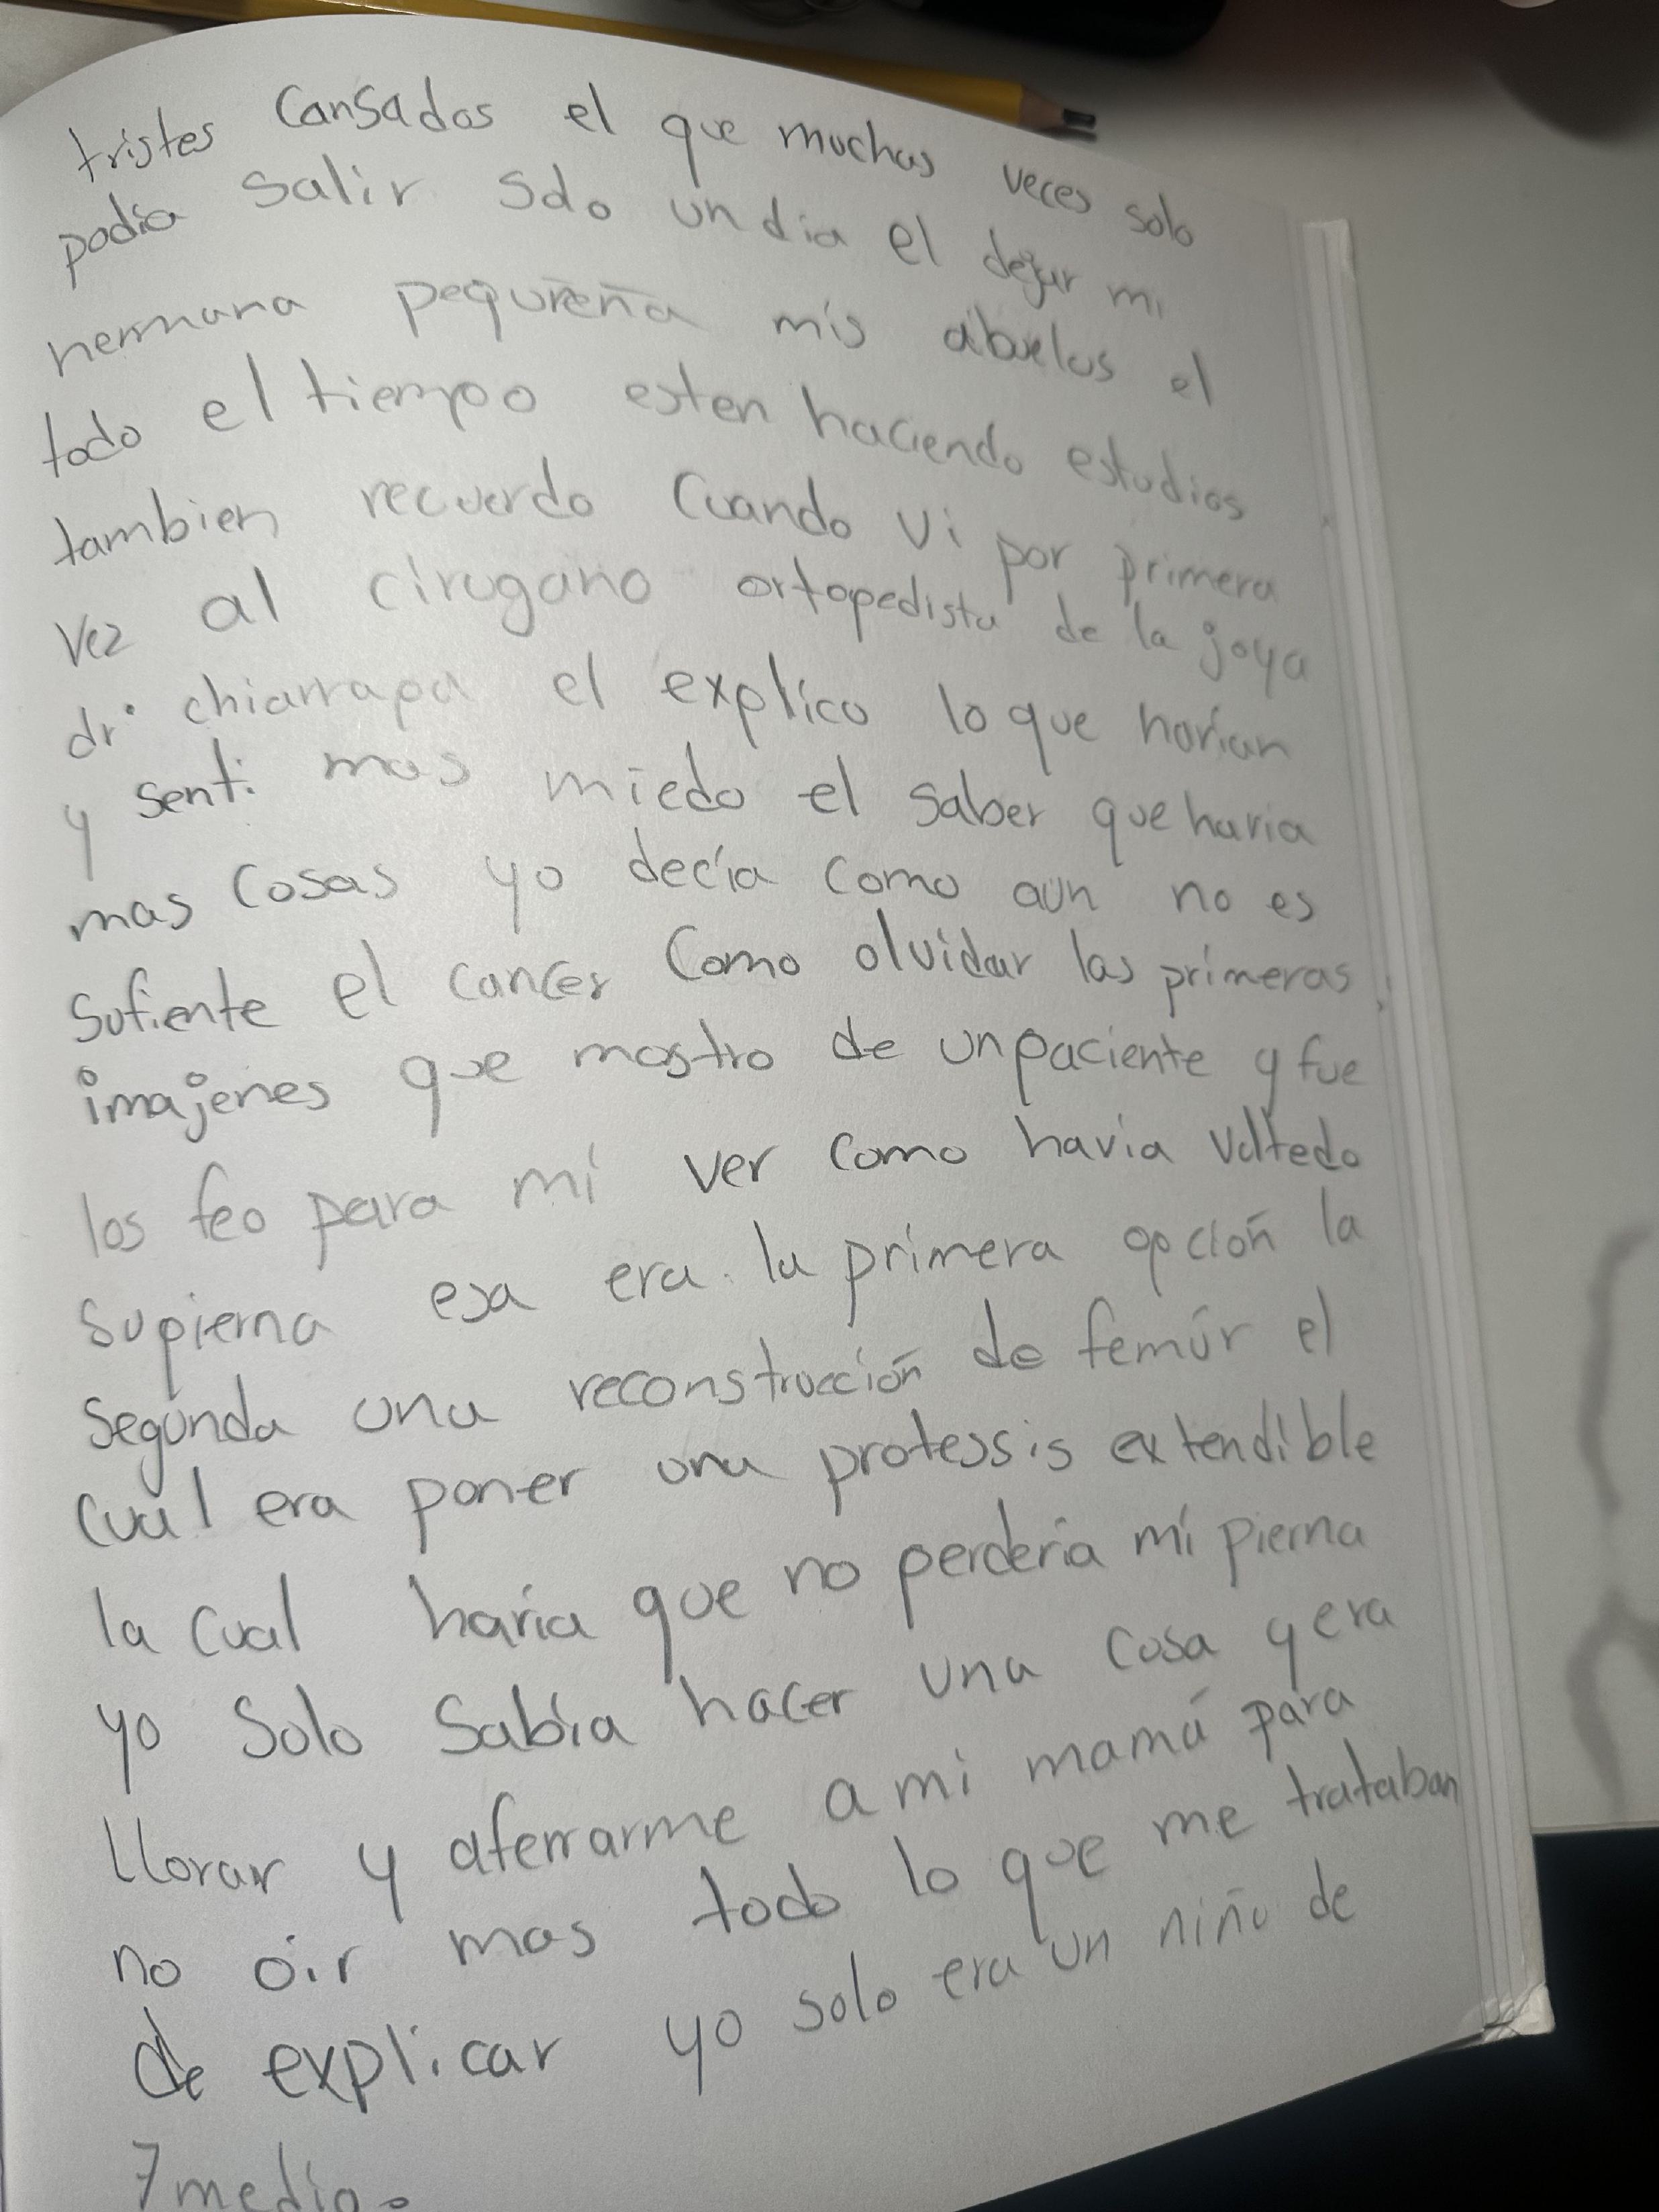 tristes Cansados el que muchas veces solo
podia Salir solo un dia el dejar mi
hermana pequeña mis abuelos el
todo el tiempo esten haciendo estudios
tambien recuerdo Cuando vi por primera
vez al cirugano ortopedista de la joya
dr. chiarrapa el explico lo que harian
y senti mas miedo el saber que haria
mas Cosas yo decía Como aun no es
Sufiente el cancer Como olvidar las primeras
imajenes que mostro de un paciente y fue
los feo para mí ver como havia volteado
su pierna esa era la primera opción la
Segunda una reconstrucción de femúr el
Cual era poner una protessis extendible
la Cual haria que no perdería mi pierna
yo Solo Sabía hacer una cosa y era
Llorar y aferrarme a mi mamá para
no oir mas todo lo que me trataban
de explicar yo solo era un niño de
7 medio.